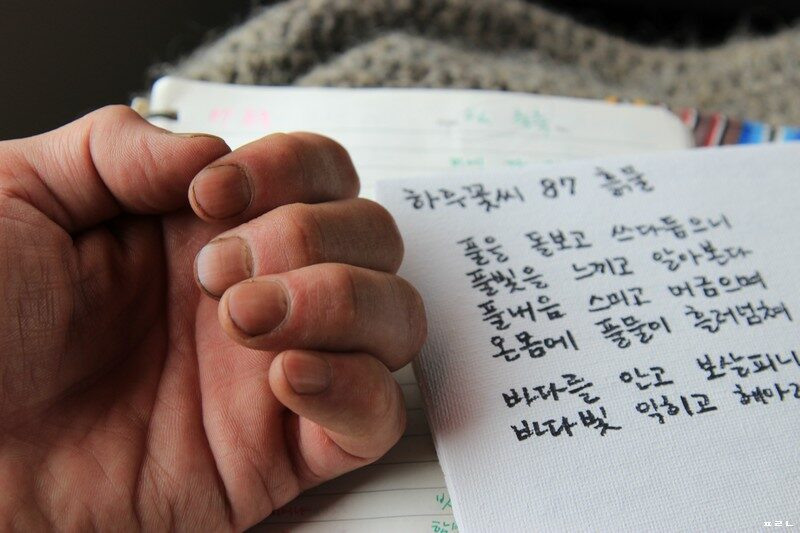 하루꽃씨 87 흙물
풀을 돌보고 쓰다듬으니
풀빛을 느끼고 알아본다
풀내음 스미고 머금으며
온몸에 풀물이 흘러넘쳐
바다를 안고 보살피니
바다빛 익히고 헤아리
ㅍㄹㄴ